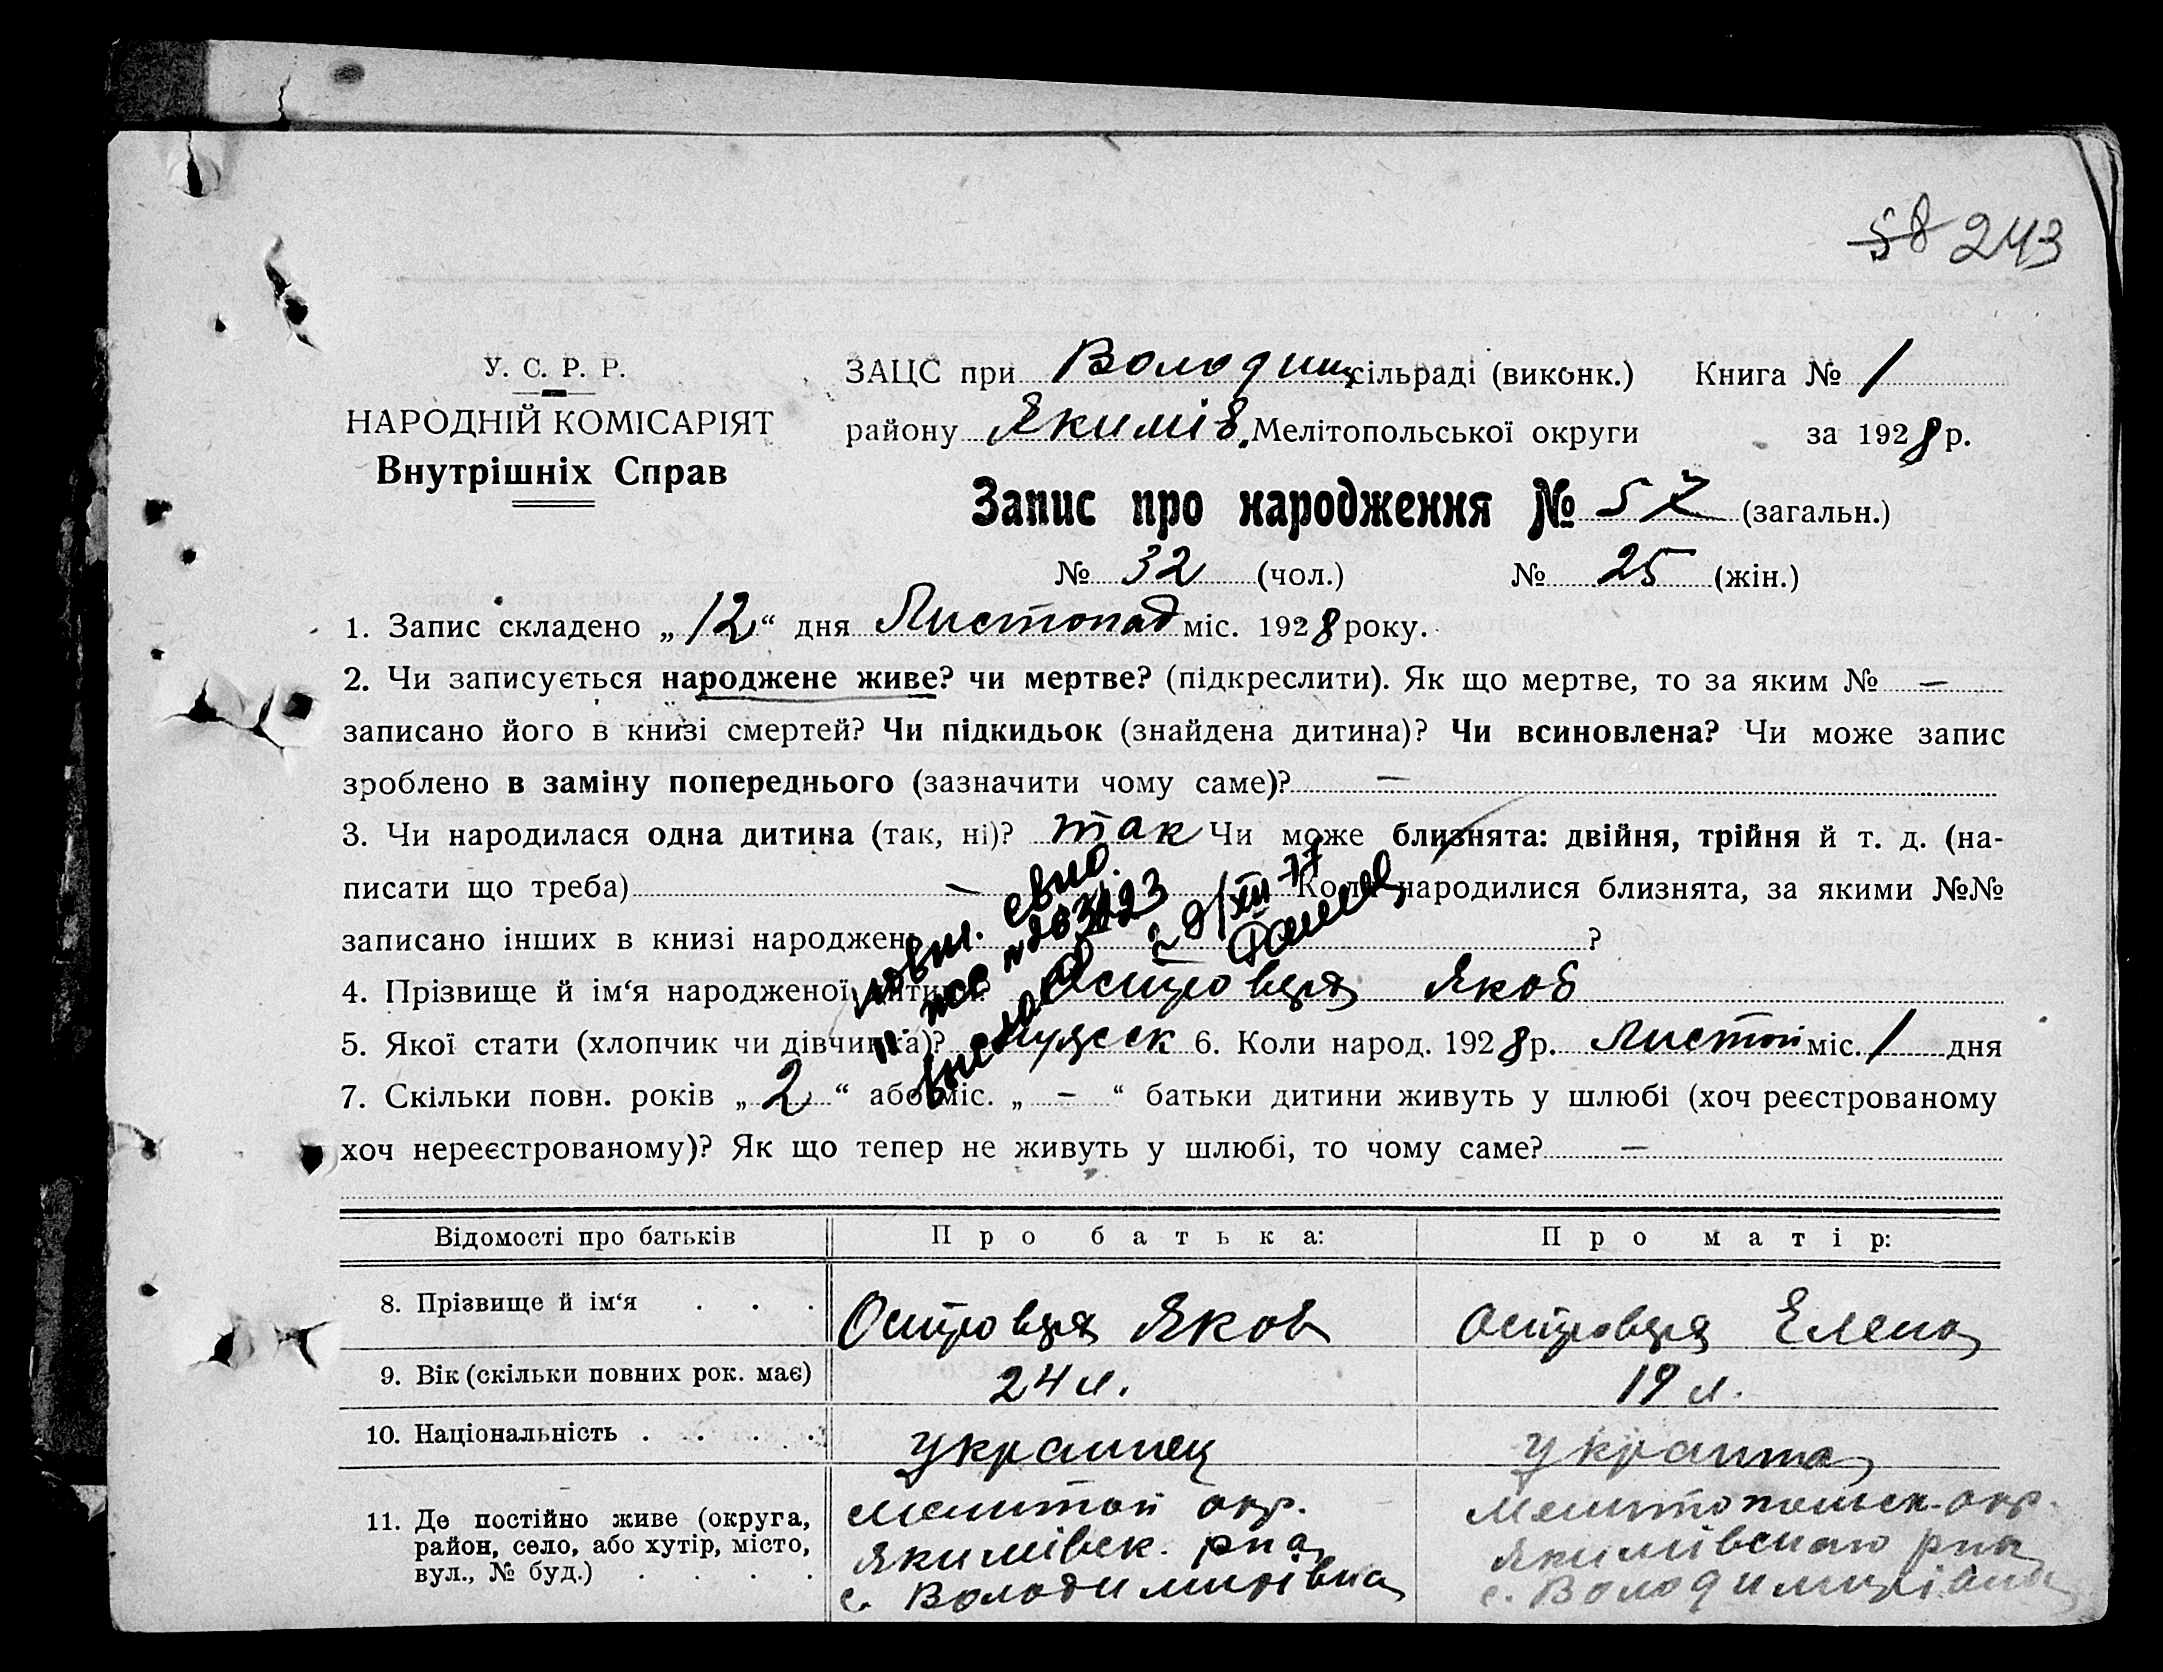 58 243
У. С. Р. Р.
НАРОДНІЙ КОМІСАРІЯТ
Внутрішніх Справ
ЗАЦС при Володим сільраді (виконк.) Книга № 1
району Якимів. Мелітопольської округи за 1928 р.
Запис про народження № 57 (загальн.)
№ 32 (чол.) № 25 (жін.)
1. Запис складено „12“ дня Листопад міс. 1928 року.
2. Чи записується народжене живе? чи мертве? (підкреслити). Як що мертве, то за яким № —
записано його в книзі смертей? Чи підкидьок (знайдена дитина)? Чи всиновлена? Чи може запис
зроблено в заміну попереднього (зазначити чому саме)? —
3. Чи народилася одна дитина (так, ні)? так Чи може близнята: двійня, трійня й т. д. (на-
писати що треба) — Коли народилися близнята, за якими №№
записано інших в книзі народжень ?
4. Прізвище й ім‘я народженої дитини: Островця Яков
5. Якої стати (хлопчик чи дівчинка)? мужеск 6. Коли народ. 1928 р. Листоп міс. 1 дня
7. Скільки повн. років „2“ або міс. „—“ батьки дитини живуть у шлюбі (хоч реєстрованому
хоч нереєстрованому)? Як що тепер не живуть у шлюбі, то чому саме? —
Відомості про батьків Про батька: Про матір:
8. Прізвище й ім‘я . . . Островця Яков Островця Елена
9. Вік (скільки повних рок. має) 24 л. 19 л.
10. Національність . . . . украинец украінка
11. Де постійно живе (округа, Мелитоп окр. Мелитопольск. окр.
район, село, або хутір, місто, Якимівск. р-на Якимівского р-на
вул., № буд.) . . . . с. Володимирівка с. Володимирівка